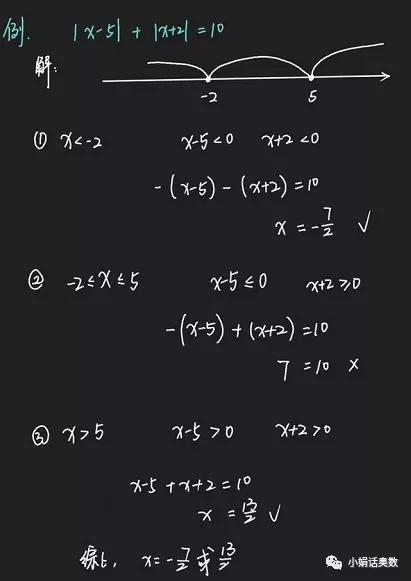 例. |x-5| + |x+2| = 10
解:
-2 5
① x<-2 x-5<0 x+2<0
-(x-5) - (x+2) = 10
x = -7/2 √
② -2≤x≤5 x-5≤0 x+2≥0
-(x-5) + (x+2) = 10
7 = 10 ×
③ x>5 x-5>0 x+2>0
x-5+x+2=10
x = 13/2 √
综上, x=-7/2 或 13/2
小娟话奥数